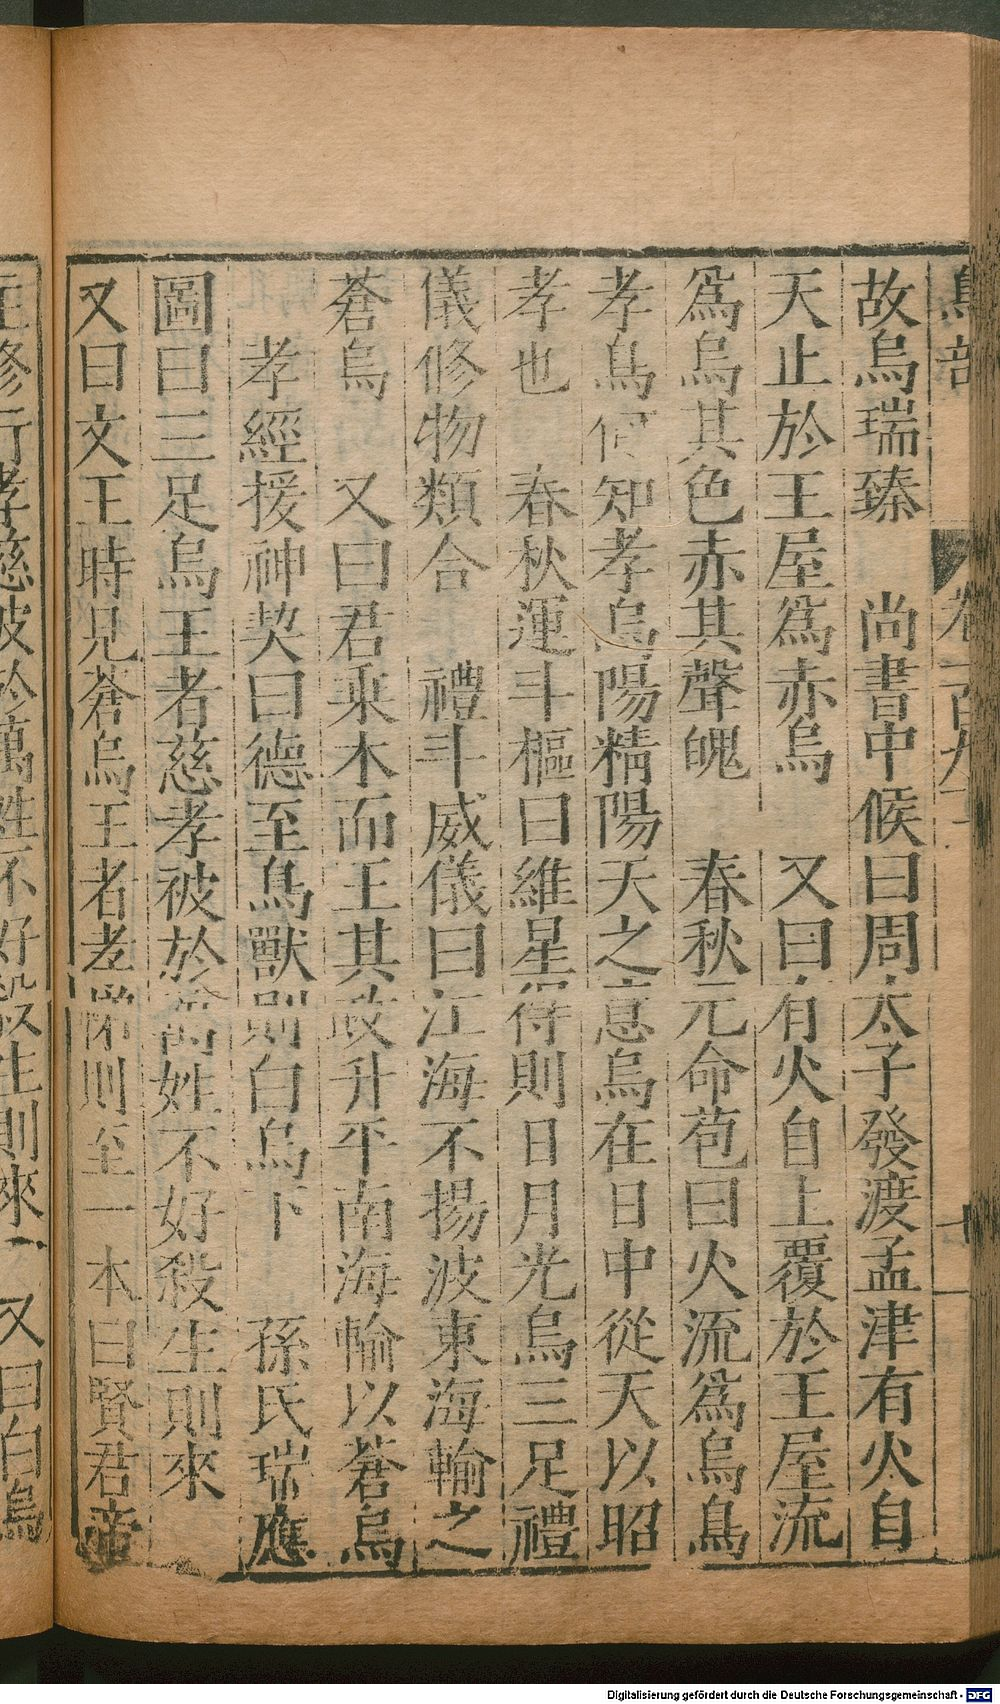 鳥部 卷一百九十 七
故烏瑞臻 尚書中候曰周太子發渡孟津有火自
天止於王屋爲赤烏 又曰有火自上覆於王屋流
爲烏其色赤其聲魄 春秋元命苞曰火流爲烏烏
孝鳥何知孝烏陽精陽天之意烏在日中從天以昭
孝也 春秋運斗樞曰維星得則日月光烏三足禮
儀修物類合 禮斗威儀曰江海不揚波東海輸之
蒼烏 又曰君乘木而王其政升平南海輸以蒼烏
孝經援神契曰德至鳥獸則白烏下 孫氏瑞應
圖曰三足烏王者慈孝被於萬姓不好殺生則來
又曰文王時見蒼烏王者孝悌則至一本曰賢君帝
王修行孝慈被於萬姓不好殺生則來 又曰白烏
Digitalisierung gefördert durch die Deutsche Forschungsgemeinschaft - DFG